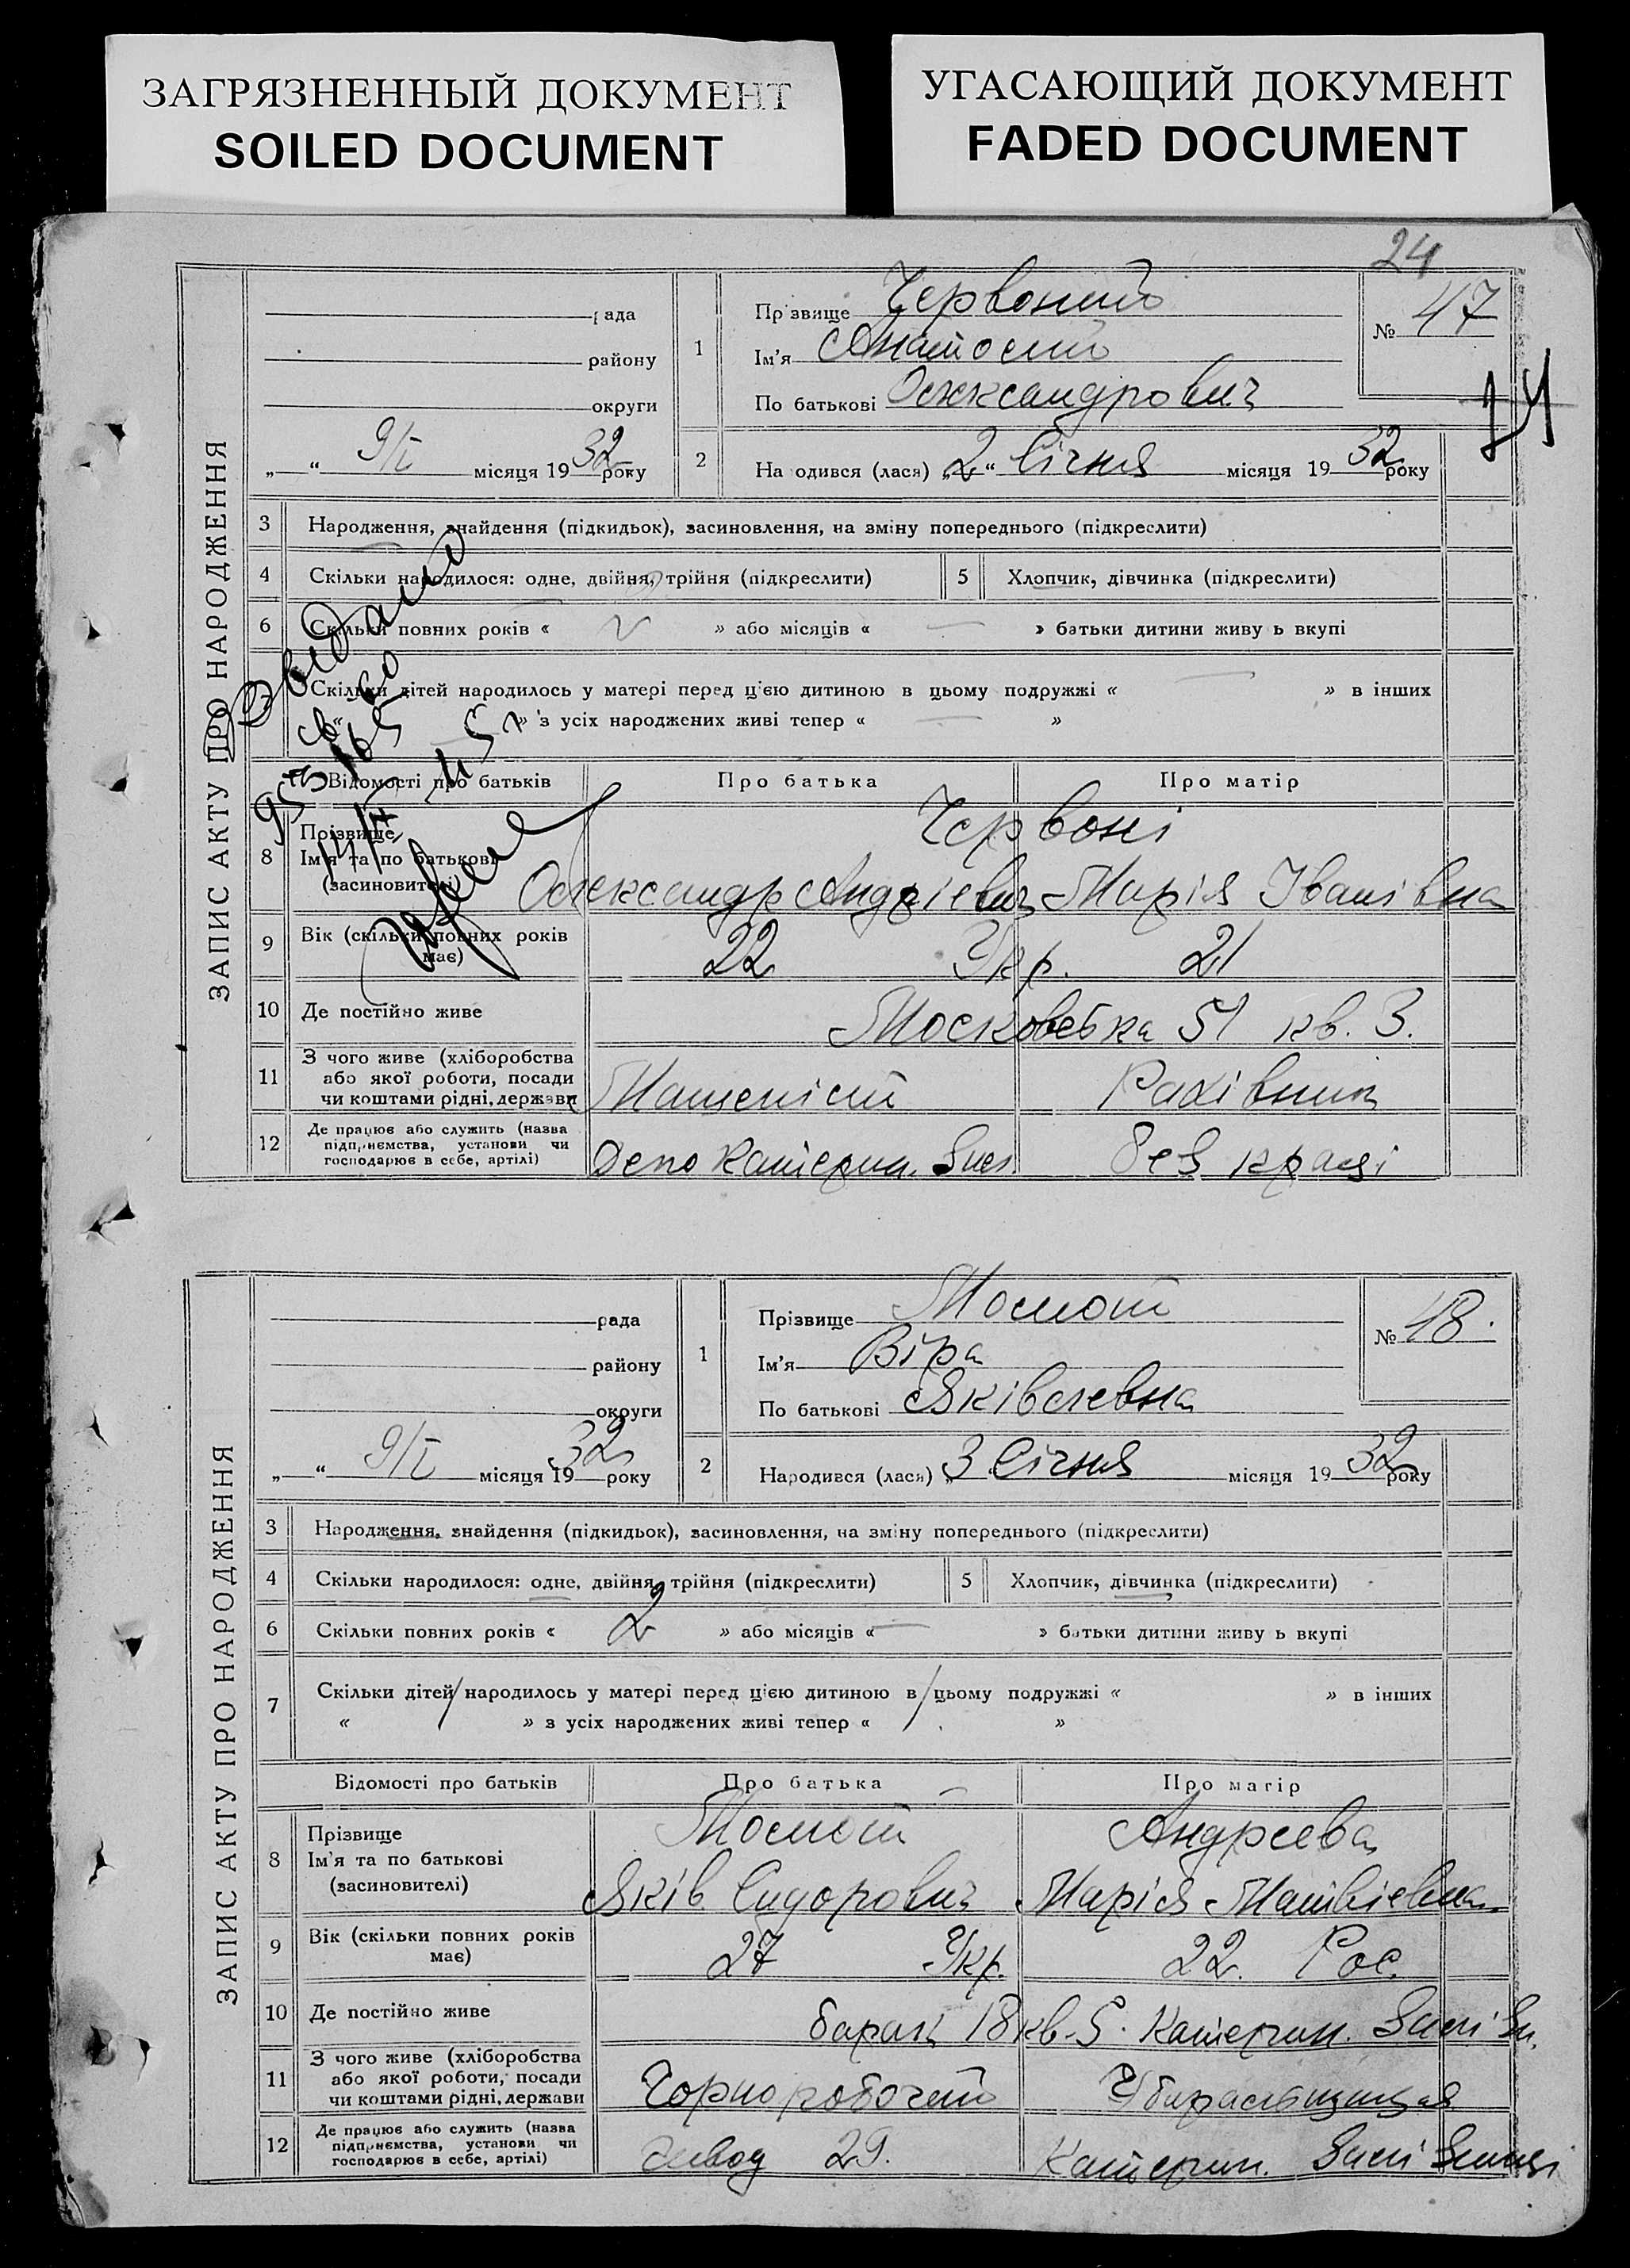 ЗАГРЯЗНЕННЫЙ ДОКУМЕНТ
SOILED DOCUMENT
УГАСАЮЩИЙ ДОКУМЕНТ
FADED DOCUMENT
24
ЗАПИС АКТУ ПРО НАРОДЖЕННЯ
рада
району
округи
„ “ 9/I місяця 1932 року
1
Прізвище Червоний
Ім'я Анатолий
По батькові Олександрович
№ 47
24
2 Народився (лася) „2“ Січня місяця 1932 року
3 Народження, знайдення (підкидьок), засиновлення, на зміну попереднього (підкреслити)
4 Скільки народилося: одне, двійня, трійня (підкреслити)
5 Хлопчик, дівчинка (підкреслити)
6 Скільки повних років « » або місяців « — » батьки дитини живу ь вкупі
Скільки дітей народилось у матері перед цією дитиною в цьому подружжі « — » в інших
« » з усіх народжених живі тепер « — »
Відомості про батьків Про батька Про матір
8 Прізвище
Ім'я та по батькові
(засновителі)
Червоні
Олександр Андрієвич Марія Іванівна
9 Вік (скільки повних років має) 22 Укр. 21
10 Де постійно живе Московська 51 кв. 3.
11 З чого живе (хліборобства
або якої роботи, посади
чи коштами рідні, держави
Машеніст Рахівник
12 Де працює або служить (назва
підприємства, установи чи
господарює в себе, артілі)
Депо Катерин. без праці
ЗАПИС АКТУ ПРО НАРОДЖЕННЯ
рада
району
округи
„ “ 9/I місяця 1932 року
1
Прізвище Момот
Ім'я Віра
По батькові Яківлевна
№ 48.
2 Народився (лася) „3 Січня місяця 1932 року
3 Народження, знайдення (підкидьок), засиновлення, на зміну попереднього (підкреслити)
4 Скільки народилося: одне, двійня, трійня (підкреслити)
5 Хлопчик, дівчинка (підкреслити)
6 Скільки повних років « 2 » або місяців « — » батьки дитини живу ь вкупі
7 Скільки дітей народилось у матері перед цією дитиною в цьому подружжі « » в інших
« » з усіх народжених живі тепер « »
Відомості про батьків Про батька Про матір
8 Прізвище
Ім'я та по батькові
(засиновителі)
Момот Андреева
Яків Сидорович Марія Матвіевна
9 Вік (скільки повних років має) 27 Укр. 22. Рос.
10 Де постійно живе барак 18 кв. 5. Катерин.
11 З чого живе (хліборобства
або якої роботи, посади
чи коштами рідні, держави
Чорноробочий Убиральщиця
12 Де працює або служить (назва
підприємства, установи чи
господарює в себе, артілі)
завод 29. Катерин.